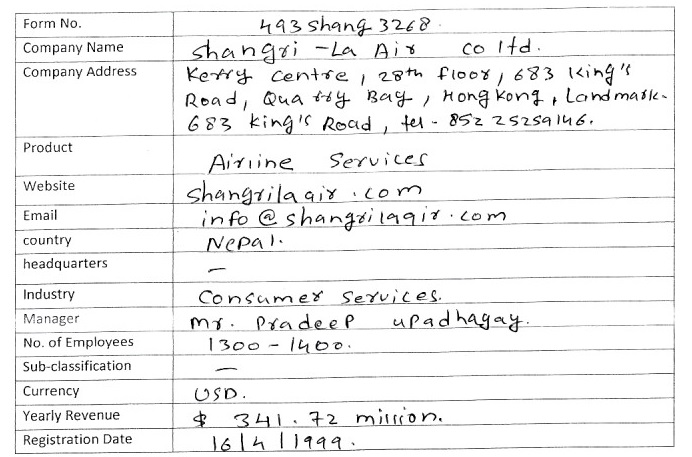 Form No. 493 shang 3268.
Company Name shangri-La Air co ltd.
Company Address Kerry centre, 28th floor, 683 King's
Road, Quarry Bay, Hong Kong, Landmark-
683 king's Road, tel - 852 25259146.
Product Airline Services
Website shangrilaair.com
Email info@shangrilaair.com
country Nepal.
headquarters –
Industry Consumer Services.
Manager Mr. Pradeep upadhagay.
No. of Employees 1300 - 1400.
Sub-classification –
Currency USD.
Yearly Revenue $ 341.72 million.
Registration Date 16/4/1999.